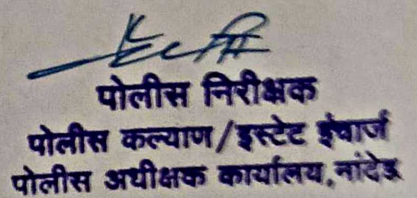 पोलीस निरीक्षक
पोलीस कल्याण/इस्टेट इंचार्ज
पोलीस अधीक्षक कार्यालय, नांदेड